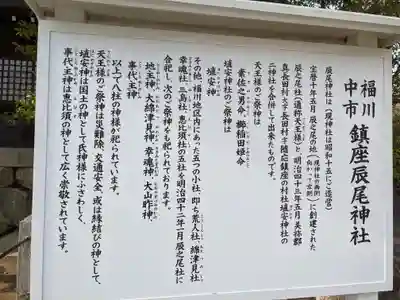 福川
中市 鎮座辰尾神社
辰尾神社は(現神社は昭和十五にご造営)
宝暦十年五月辰之尾の地(現神社の前側 向かって右側)に創建された
辰之尾社(通称天王様)と明治四十三年五月美祢郡
真長田村大字長田村字随応鎮座の村社埴安神社の
二神社を合併して出来たものです。
天王様のご祭神は
素佐之男命、櫛稲田姫命
埴安神社のご祭神は
埴安神
その他、福川地区内にあった五つの小社、即ち荒人社、綿津見社
幸魂社、三島社、恵比須社の五社を明治四十二年一月辰之尾社に
合祀し、次のご祭神を祀られております。
地主神、大綿津見神、幸魂神、大山昨神、
事代主神
以上で八柱の神様が祀られています。
天王様のご祭神は厄難除、交通安全、或は縁結びの神として、
埴安神は国土の神として氏神様にふさわしく、
事代主神は恵比須の神として広く崇敬されています。